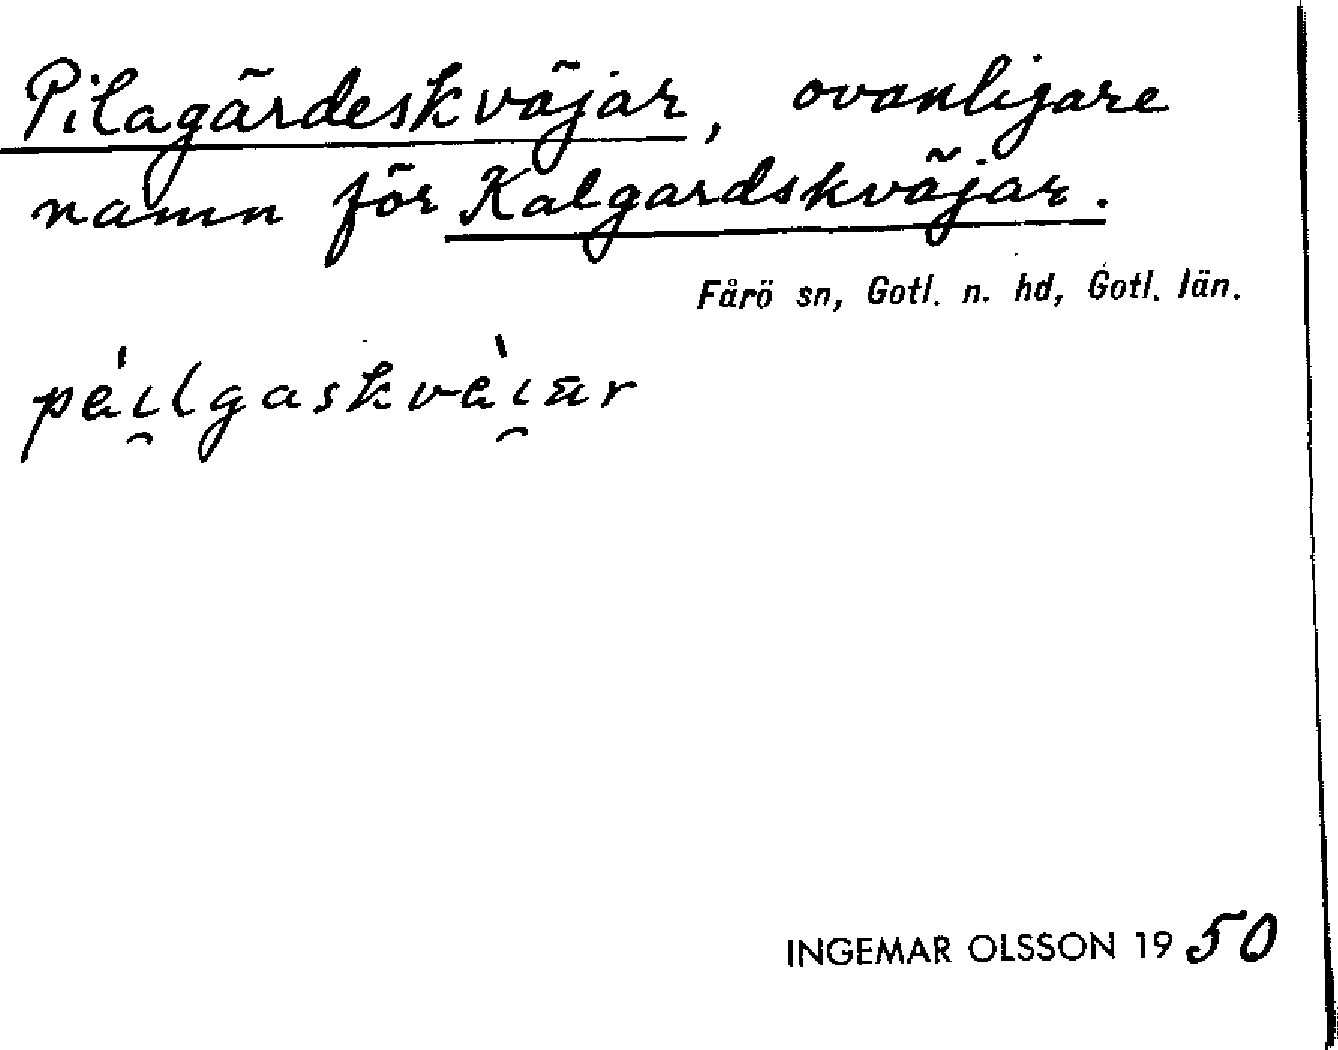 Pilagärdeskväjar, ovanligare
namn för Kalgardskväjar.
Fårö sn, Gotl. n. hd, Gotl. län.
pá̈i̯lgaskvè̈i̯ar
INGEMAR OLSSON 1950